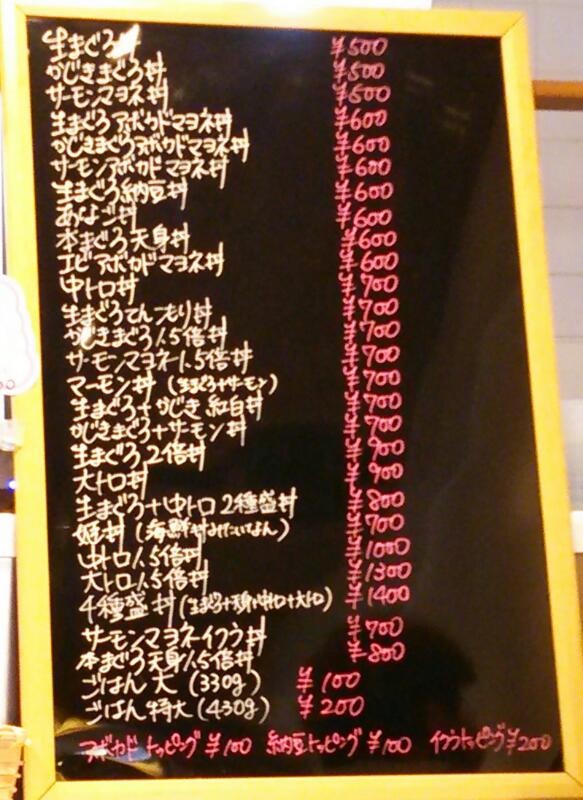 生まぐろ丼 ¥500
かじきまぐろ丼 ¥500
サーモンマヨネ丼 ¥500
生まぐろアボカドマヨネ丼 ¥600
かじきまぐろアボカドマヨネ丼 ¥600
サーモンアボカドマヨネ丼 ¥600
生まぐろ納豆丼 ¥600
あなご丼 ¥600
本まぐろ天身丼 ¥600
エビアボカドマヨネ丼 ¥600
中トロ丼 ¥700
生まぐろてんこもり丼 ¥700
かじきまぐろ1.5倍丼 ¥700
サーモンマヨネ1.5倍丼 ¥700
マーモン丼 (生まぐろ+サーモン) ¥700
生まぐろ+かじき 紅白丼 ¥700
かじきまぐろ+サーモン丼 ¥700
生まぐろ2倍丼 ¥900
大トロ丼 ¥900
生まぐろ+中トロ2種盛丼 ¥800
姫丼 (海鮮丼みたいでよん) ¥700
中トロ1.5倍丼 ¥1000
大トロ1.5倍丼 ¥1300
4種盛丼 (生まぐろ+天身+中トロ+大トロ) ¥1400
サーモンマヨネイクラ丼 ¥700
本まぐろ天身1.5倍丼 ¥800
ごはん 大 (330g) ¥100
ごはん 特大 (430g) ¥200
アボカド トッピング ¥100 納豆トッピング ¥100 イクラトッピング ¥200